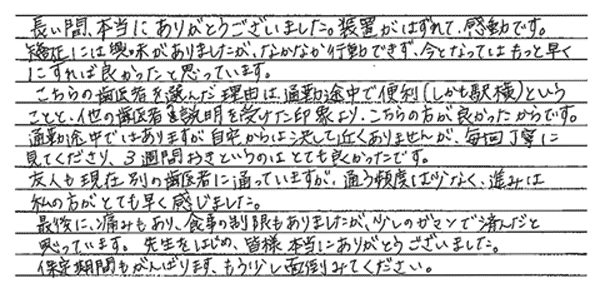 長い間、本当にありがとうございました。装置がはずれて、感動です。
矯正には興味がありましたが、なかなか行動できず、今となってはもっと早く
にすれば良かったと思っています。
こちらの歯医者を選んだ理由は、通勤途中で便利(しかも駅横)という
ことと、他の歯医者も説明を受けた印象より、こちらの方が良かったからです。
通勤途中ではありますが自宅からは決して近くありませんが、毎回丁寧に
見てくださり、3週間おきというのはとても良かったです。
友人も現在別の歯医者に通っていますが、通う頻度は少なく、進みは
私の方がとても早く感じました。
最後に、痛みもあり、食事の制限もありましたが、少しのガマンで済んだと
思っています。先生をはじめ、皆様本当にありがとうございました。
保定期間もがんばります、もう少し面倒みてください。